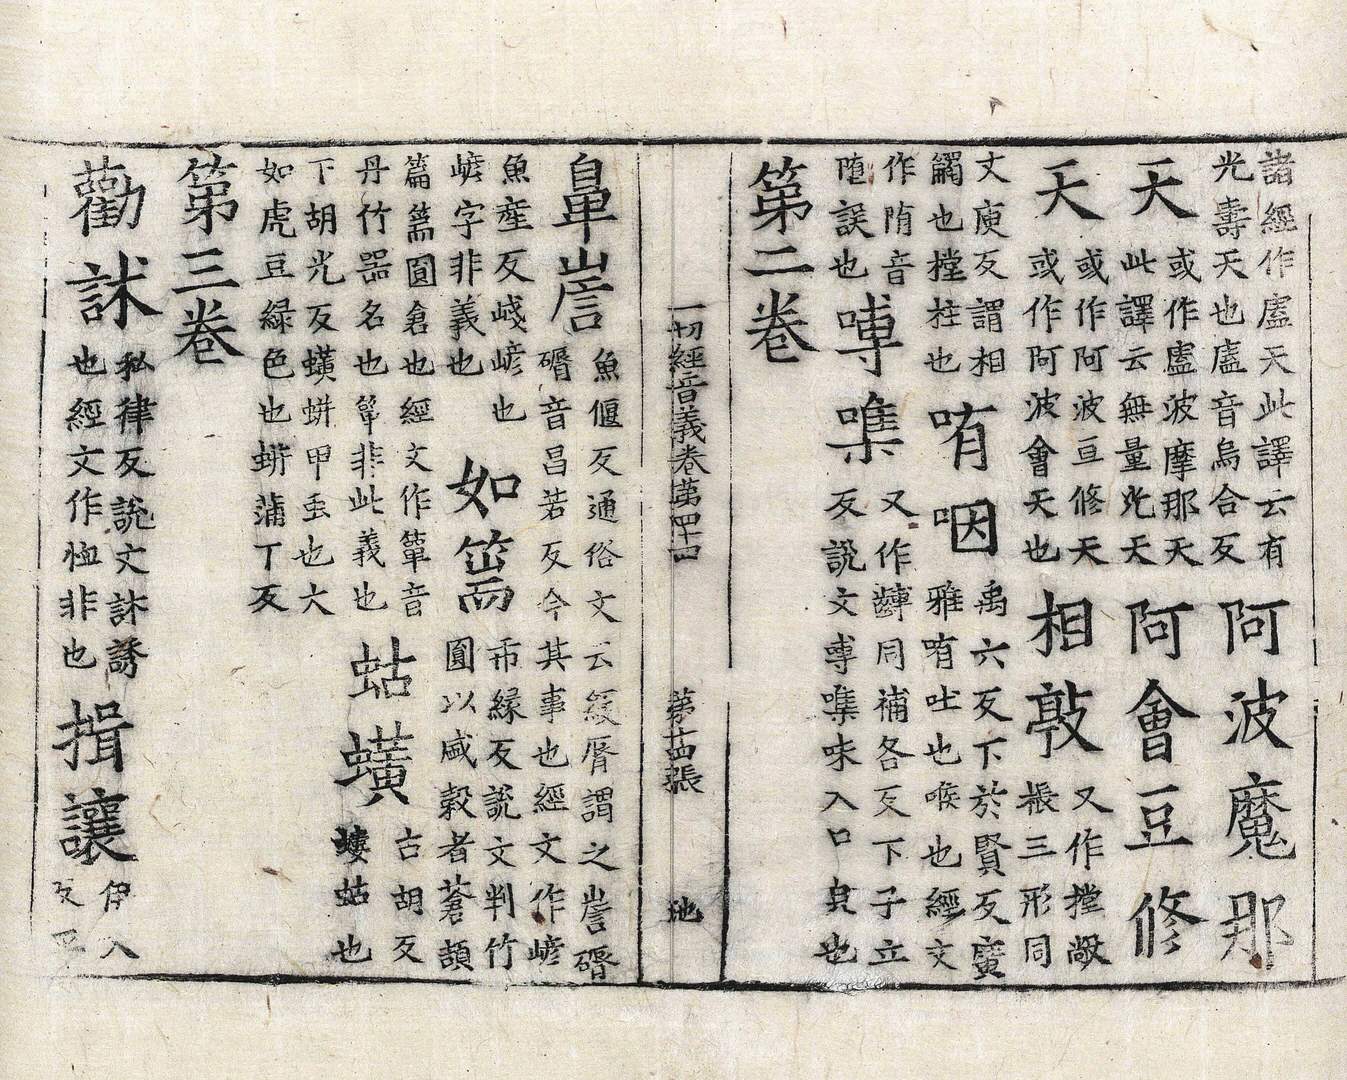 諸經作廬天此譯云有
光壽天也廬音烏合反
阿波魔那
天
或作廬波摩那天
此譯云無量光天
阿會豆修
天
或作阿波亘修天
或作阿波會天也
相敦
又作摚敞
棖三形同
丈庚反謂相
觸也摚柱也
哊咽
禹六反下於賢反廣
雅哊吐也喉也經文
作隋音
隨誤也
㗘㗱
又作同補各反下子立
反說文㗘㗱味入口皃也
第二卷
一切經音義卷第四十四 第十四張 池
魚偃反通俗文云緩脣謂之磭
磭音昌若反今其事也經文作嵃
魚産反嶘嵃也
嵃字非義也
如篅
市緣反說文判竹
圓以盛穀者蒼頡
篇篅圓倉也經文作簞音
丹竹器名也簞非此義也
蛄蟥
古胡反
螻蛄也
下胡光反蟥蛢甲虫也大
如虎豆緑色也蛢蒲丁反
第三卷
勸訹
私律反說文訹誘
也經文作恤非也
揖讓
伊入
反平